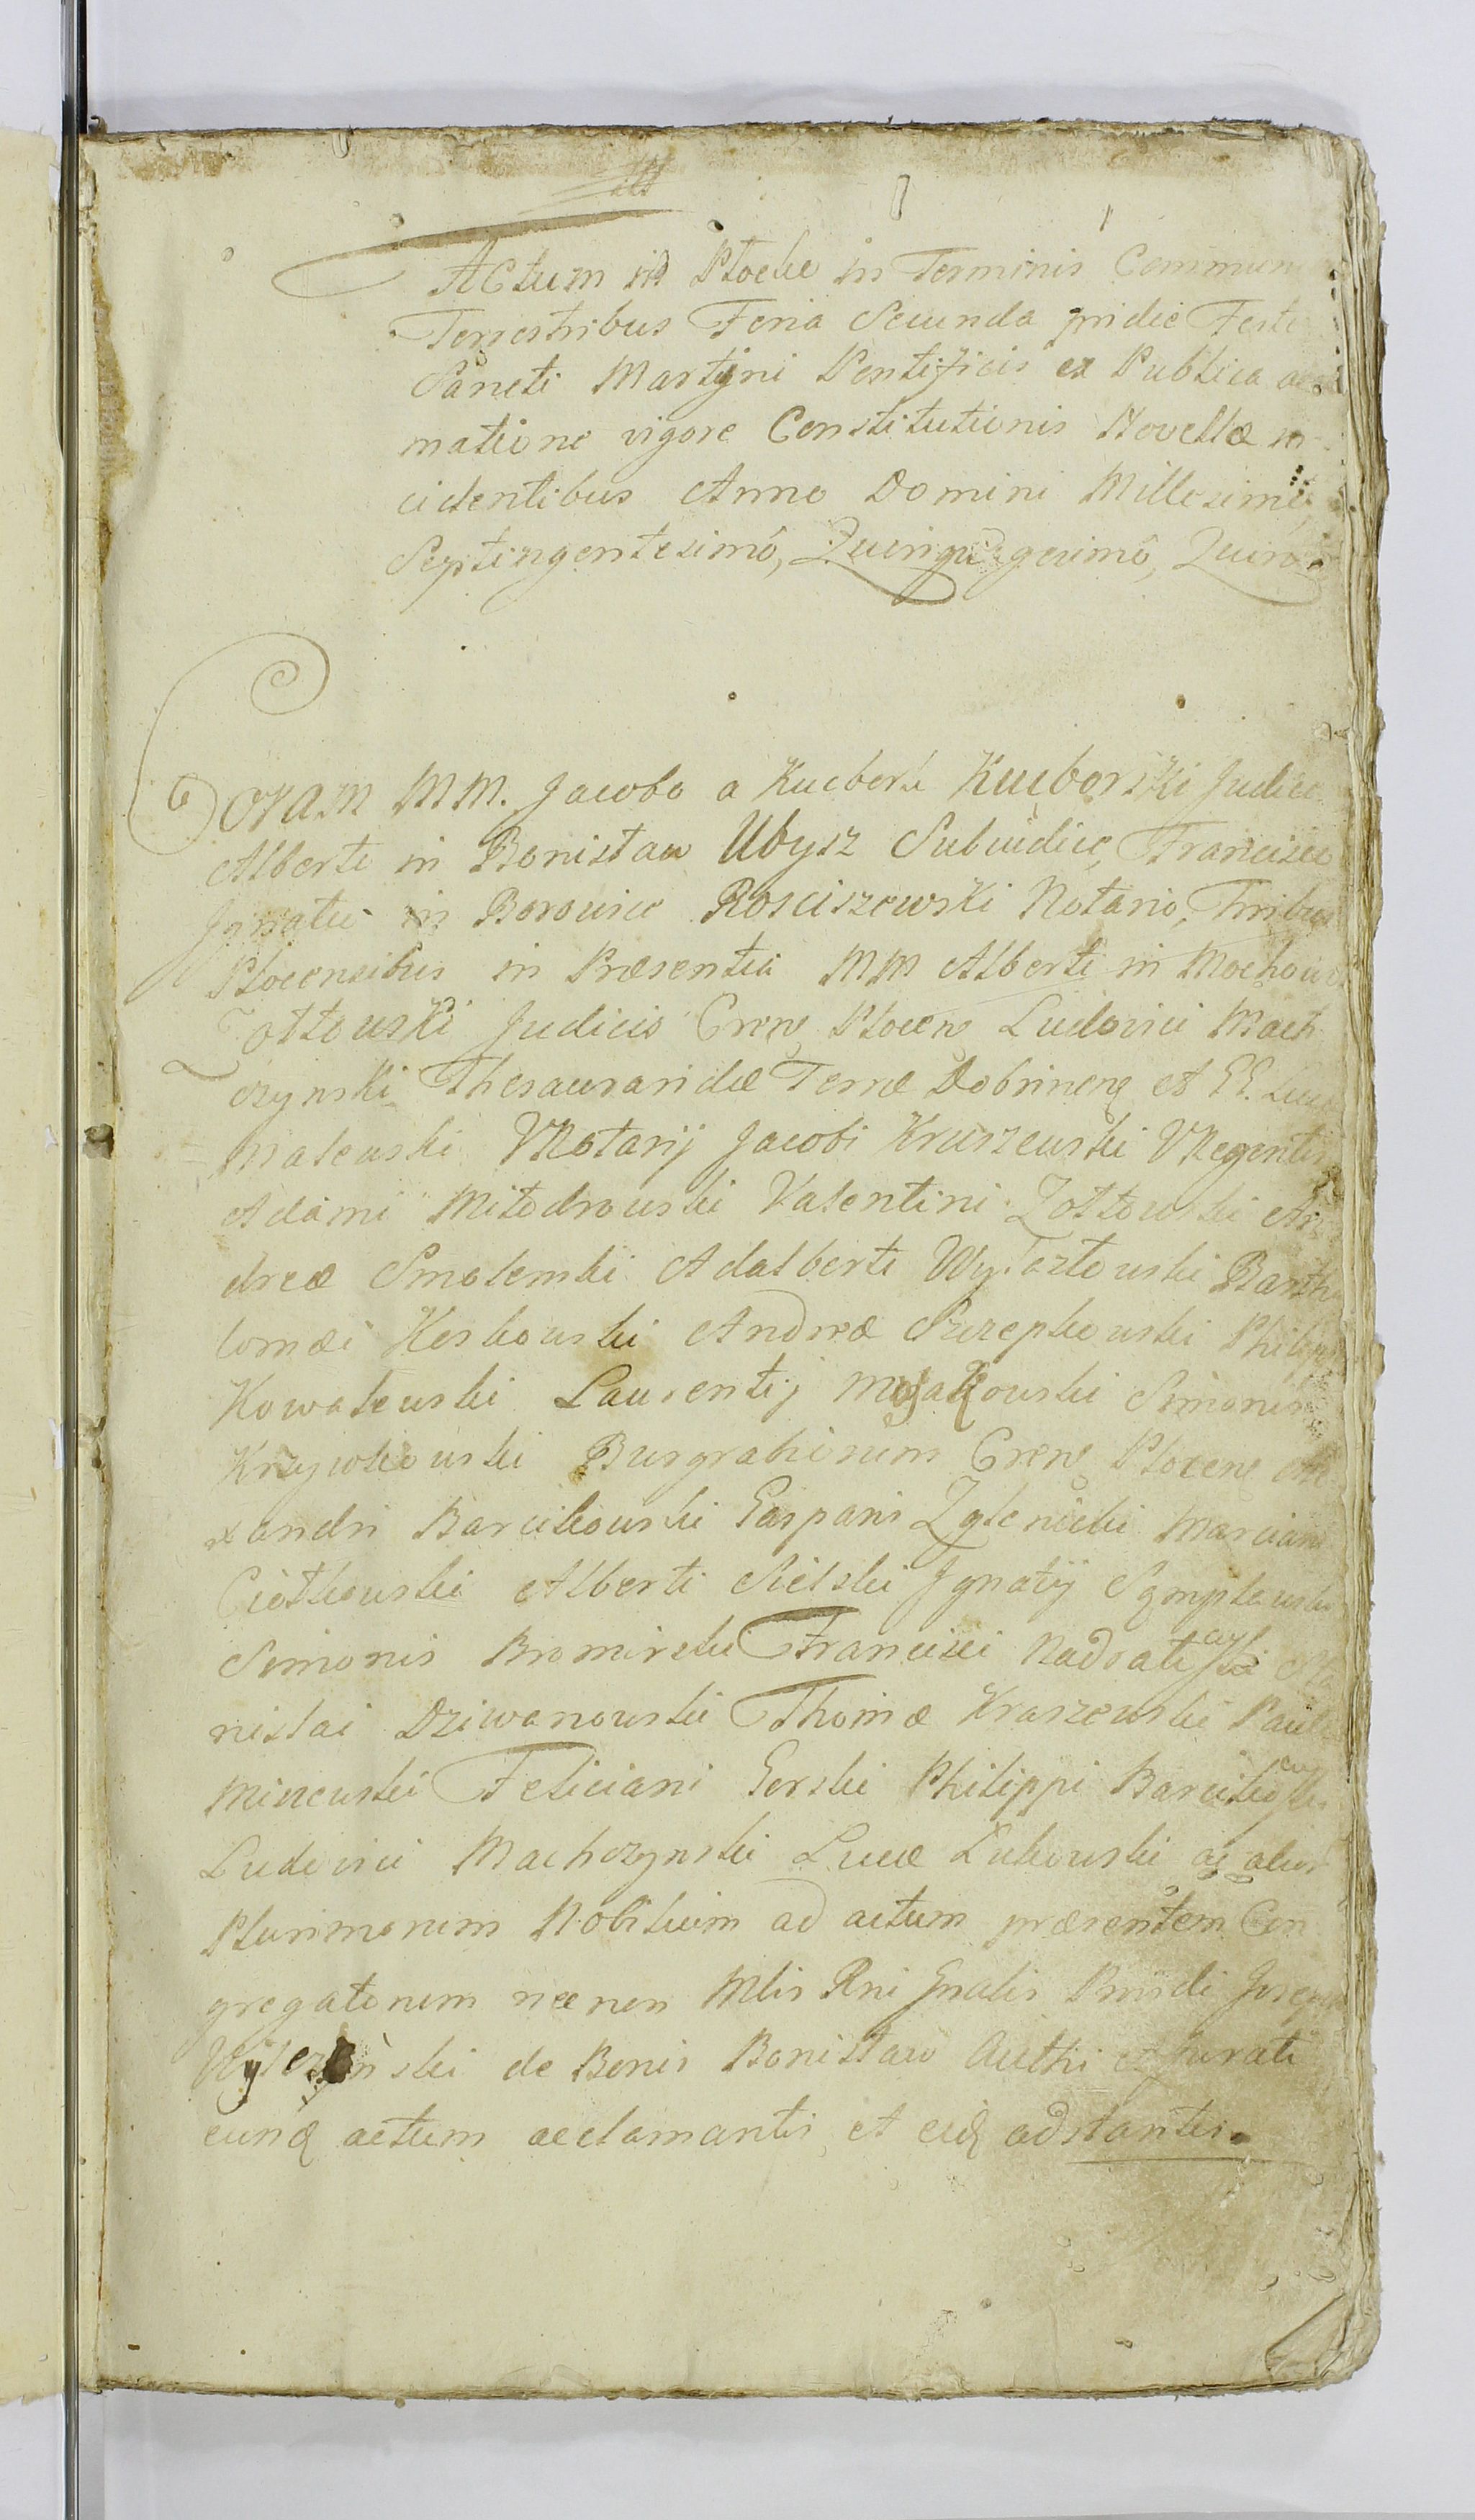 Actum in Płocko in Terminis Commun
Terrestribus Feria Secunda pridie Festi
Sancti Martyni Pontificis ex Publica
matione vigore Constitutionis Novellæ in
cidentibus Anno Domini Millesimo
Septingentesimô, Quinquagesimô, Quinto
Coram MM. Jacobo a Kucbork Kucborski Judice
Alberto in Bonisław Ubysz Subiudice, Francisco
Ignatio in Borowice Rosciszewski Notario, Tribus
Plocensibus in Præsentia MM Alberti in Mochowo
Zołtowski Judicis Cren Plocen Ludovici Mach
czynski Thesauraridæ Terræ Dobrinen et GG. Lucæ
Malewski VNotarij Jacobi Kruszewski VRegentis
Adami Miłodrowski Valentini Zołtowski An
dreæ Smolenski Adalberti Bartho
lomæi Koskowski Andreæ Szczepkowski Philippi
Kowalewski Laurentij Mysakowski Simonis
Krzywkowski Burgrabiorum Cren Plocen Ale
xandri Barcikowski Gaspari Zglenicki Marciani
Ciołkowski Alberti Sielski Ignatij
Simonis Bromirski Francisci Nadratowski Sta
nislai Dziwanowski Thomæ Kraszewski Pauli
Feliciani Gorski Philippi Barcikowski
Ludovici Machczynski Lucæ Lukowski ac alior
Plurimorum Nobilium ad actum præsentem Con
gregatorum nec non Mlis Rni Gnalis Josephi
de Bonis Bonisław Authi et Jurati
eund actum acclamantis et eid adstantis.